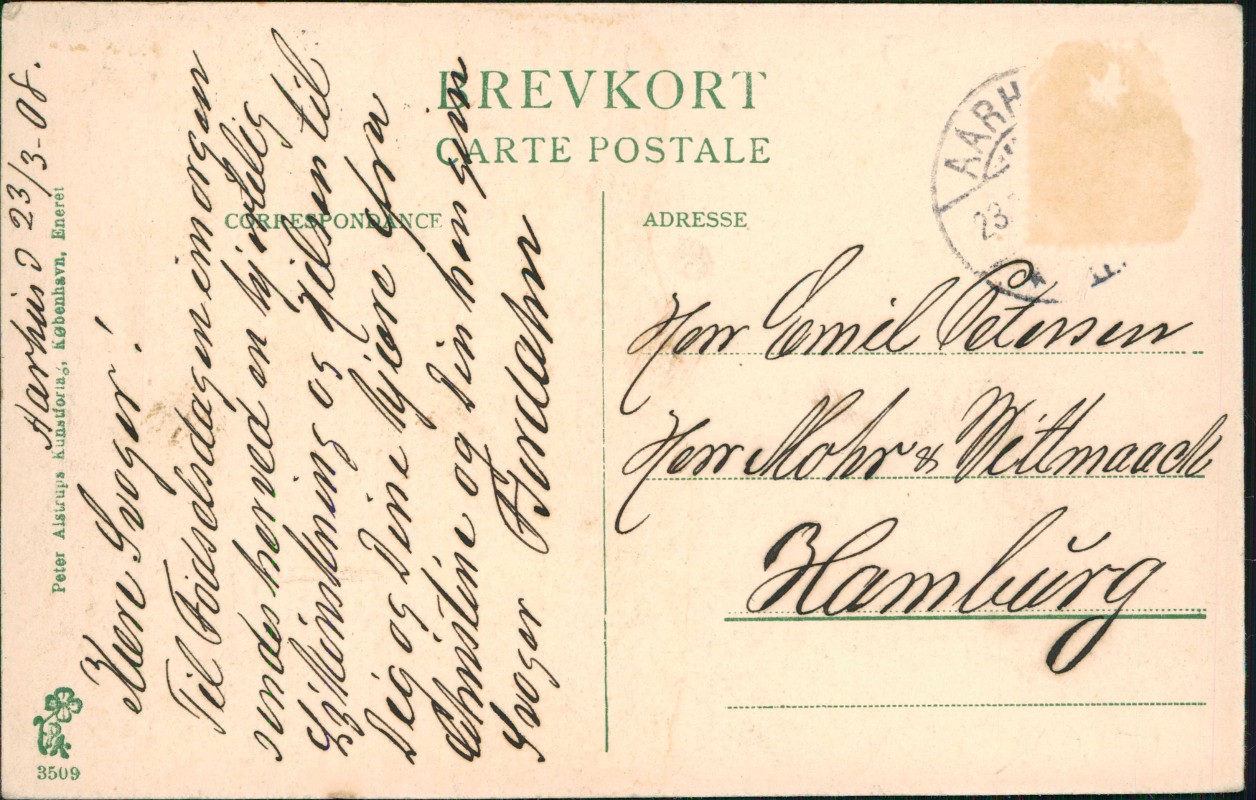 BREVKORT
CARTE POSTALE
CORRESPONDANCE
ADRESSE
AARH
23
Aarhus d 23/3-08.
Kære Svoger!
Til Fødselsdagen imorgen
sendes herved en hjertelig
Lykønskning og Hilsen til
Dig og Dine kjære fra
Christine og din hengivn
Svoger
Herr Emil Petersen
Herr Mohr & Wittmaack
Hamburg
Peter Alstrups Kunstforlag, København, Eneret
3509